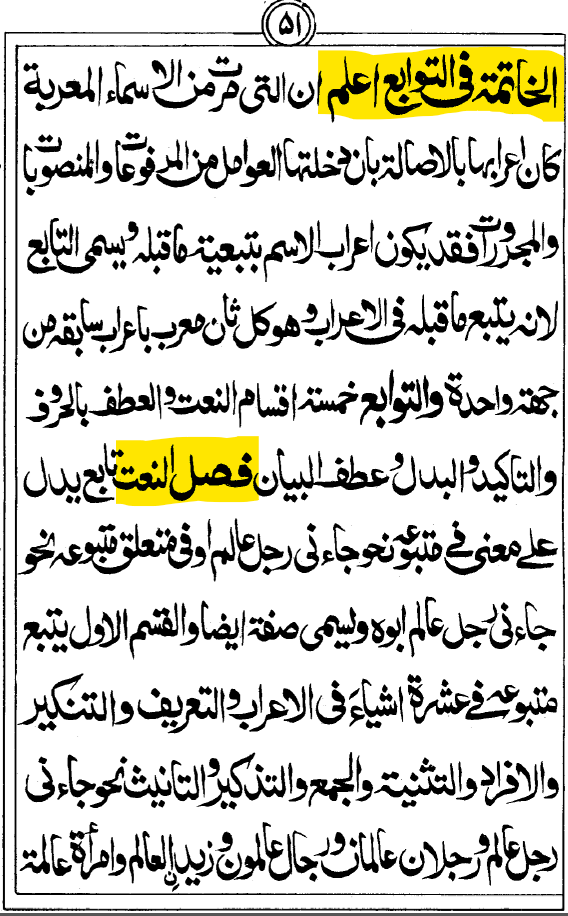 ۵۱
الخاتمة فى التوابع اعلم ان التى مرت من الاسماء المعربة
كان اعرابها بالاصالة بان دخلتها العوامل من المرفوعات والمنصوبات
والمجرورات فقد يكون اعراب الاسم بتبعية ما قبله ويسمى التابع
لانه يتبع ما قبله فى الاعراب وهو كل ثان معرب باعراب سابقه من
جهة واحدة والتوابع خمسة اقسام النعت والعطف بالحروف
والتاكيد والبدل وعطف البيان فصل النعت تابع يدل
على معنى فى متبوعه نحو جاءنى رجل عالم او فى متعلق متبوعه نحو
جاءنى رجل عالم ابوه ويسمى صفة ايضا والقسم الاول يتبع
متبوعه فى عشرة اشياءَ فى الاعراب والتعريف والتنكير
والافراد والتثنية والجمع والتذكير والتانيث نحو جاءنى
رجل عالم ورجلان عالمان ورجال عالمون وزيدنِ العالم وامرأة عالمة